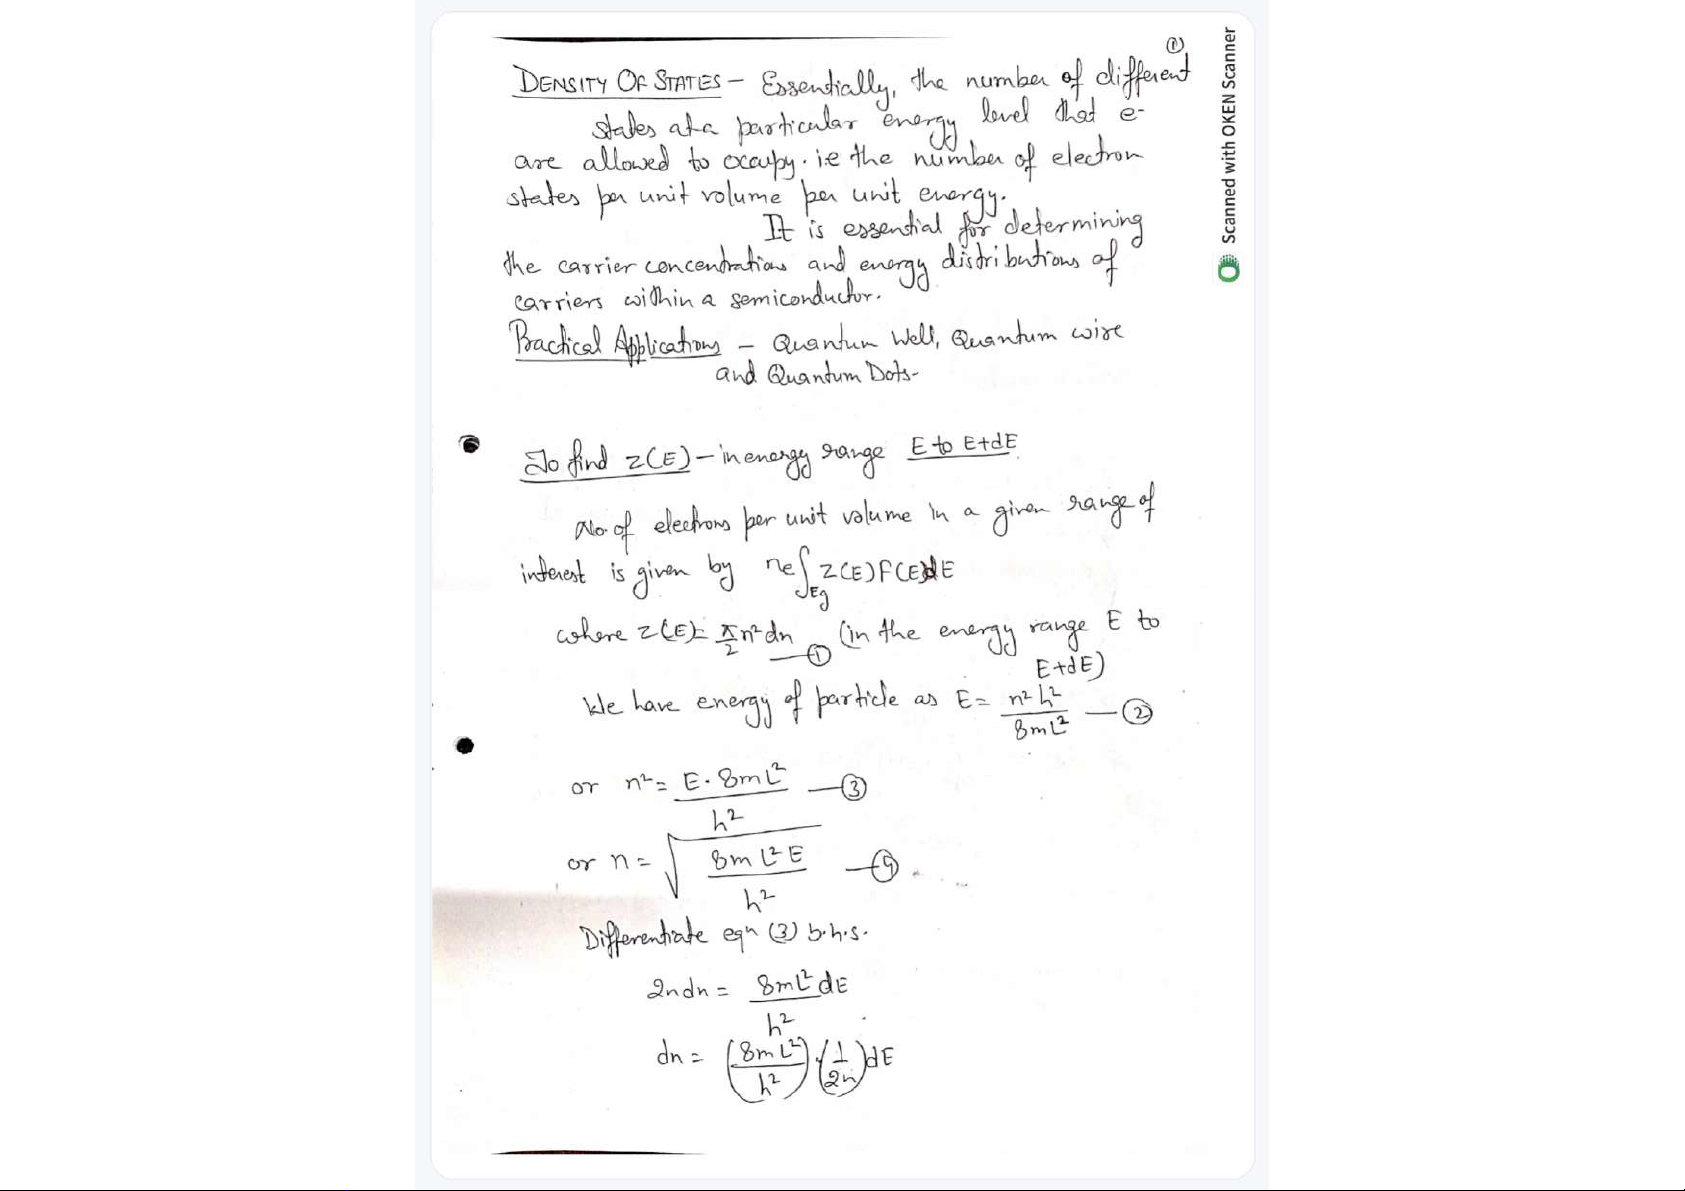 (1)
DENSITY OF STATES - Essentially, the number of different
states at a particular energy level that e-
are allowed to occupy. i.e the number of electron
states per unit volume per unit energy.
It is essential for determining
the carrier concentrations and energy distributions of
carriers within a semiconductor.
Practical Applications - Quantum Well, Quantum wire
and Quantum Dots-
To find Z(E) - in energy range E to E+dE
No. of electrons per unit volume in a given range of
interest is given by ne∫_Eg Z(E)F(E)dE
where Z(E) = π/2 n² dn —(1) (in the energy range E to
E+dE)
We have energy of particle as E = n²h²/8mL² —(2)
or n² = E·8mL²/h² —(3)
or n = √(8mL²E/h²) —(4)
Differentiate eqn (3) b.h.s.
2ndn = 8mL²dE/h²
dn = (8mL²/h²)·(1/2n)dE
Scanned with OKEN Scanner